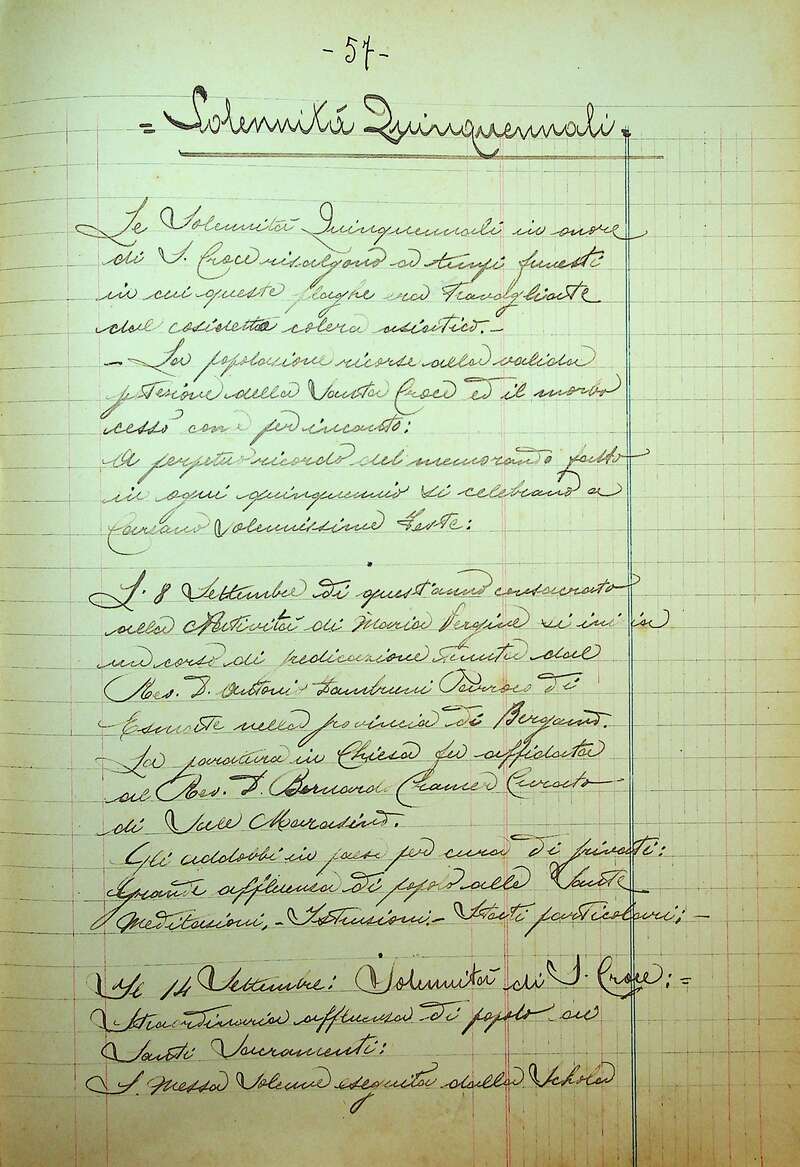 - 57 -
= Solennità Quinquennali =
Le Solennità Quinquennali in onore
di S. Croce risalgono a tempi funesti
in cui queste plaghe era travagliate
dal cosidetto colera asiatico. -
- La popolazione ricorse alla valida
potezione della Santa Croce ed il morbo
cessò come per incanto:
A perpetuo ricordo del memorando fatto
in ogni quinquennio si celebrano a
Carzano Solennissime Feste:
L' 8 Settembre di quest'anno consacrato
alla Natività di Maria Vergine si iniziò
un corso di predicazione tenuta dal
Rev. D. Antonio Tamburini Parroco di
Esmate nella provincia di Bergamo.
La paratura in Chiesa fu affidata
al Rev. D. Bernardo Cramer Curato
di Sale Marasino.
Gli addobbi in paese per cura di privati:
Grande affluenza di popolo alle Sante
Meditazioni, - Istruzioni - Stati particolari; -
Il 14 Settembre: Solennità di S. Croce: =
Straordinaria affluenza di popolo ai
Santi Sacramenti:
S. Messa Solenne eseguita dalla Schola